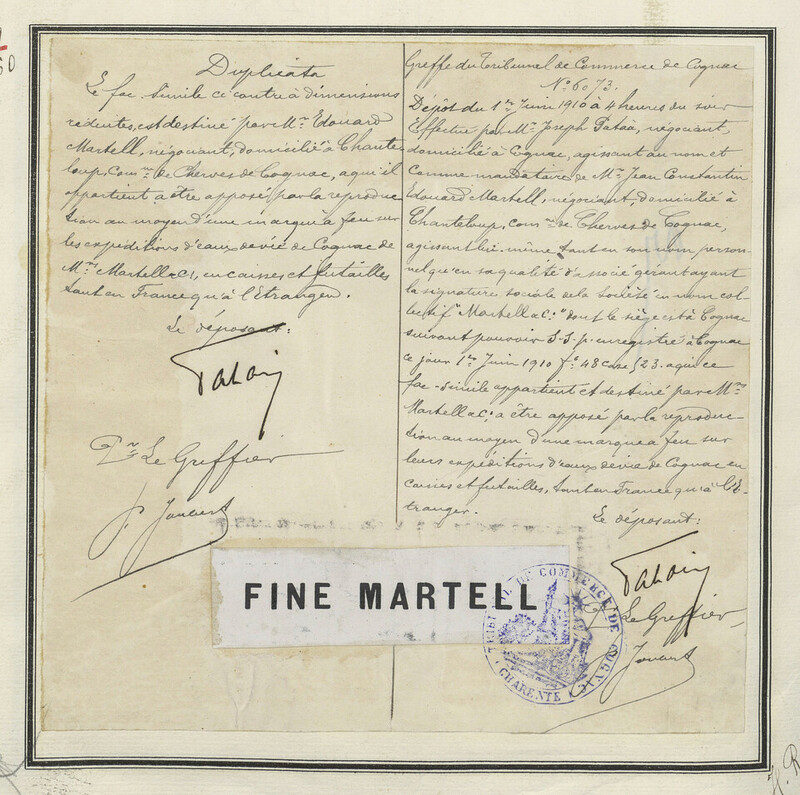 Duplicata
Le fac-simile ci contre à dimensions
réduites, est destiné par Mr Edouard
Martell, négociant, domicilié à Chante
loup, comne de Cherves de Cognac, à qui il
appartient à être apposé, par la reproduc
tion au moyen d'une marque à feu sur
les expéditions d'eaux de vie de Cognac de
Mrs Martell & Cie, en caisses et futailles
tant en France qu'à l'Etranger.
Le déposant:
Pr Le Greffier
J. Joubert
Greffe du Tribunal de Commerce de Cognac
No 6073.
Dépôt du 1er Juin 1910 à 4 heures du soir
Effectué par Mr Joseph négociant,
domicilié à Cognac, agissant au nom et
comme mandataire de Mr Jean Constantin
Edouard Martell, négociant, domicilié à
Chanteloup, comne de Cherves de Cognac,
agissant lui-même tant en son nom person-
nel qu'en sa qualité d'associé gérant ayant
la signature sociale de la Société en nom col-
lectif "Martell & Cie" dont le siège est à Cognac
suivant pouvoir S.S.p. enregistré à Cognac
ce jour 1er Juin 1910 fo 48 case 523. à qui ce
fac-simile appartient et destiné par Mrs
Martell & Cie à être apposé par la reproduc-
tion au moyen d'une marque à feu sur
leurs expéditions d'eaux de vie de Cognac en
caisses et futailles, tant en France qu'à l'E-
tranger.
Le déposant:
Pr Le Greffier
Joubert
FINE MARTELL
TRIBUNAL DE COMMERCE DE COGNAC
CHARENTE